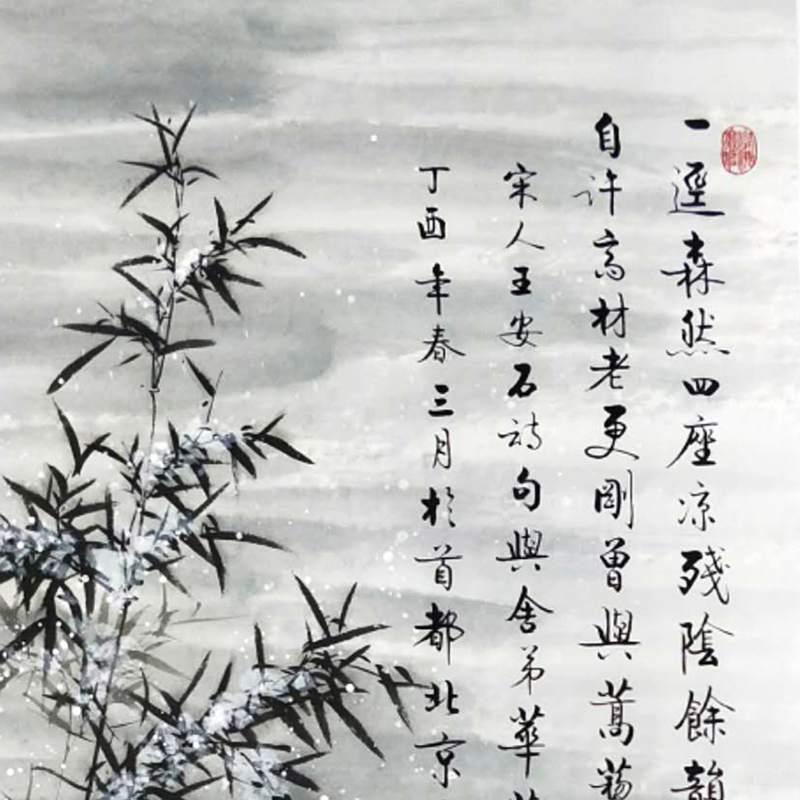 一逕森然四座凉殘陰餘韻
自許高材老更剛曾與蒿
宋人王安石詩句與舍弟華
丁酉年春三月於首都北京